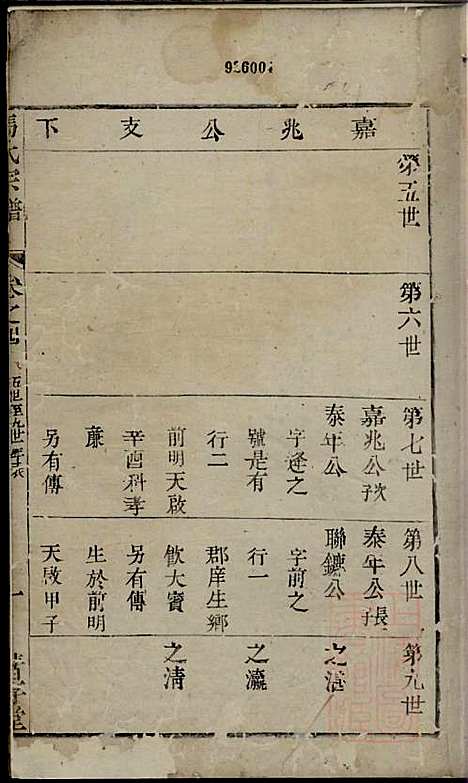 926004
嘉兆公支下
第五世
第六世
第七世
嘉兆公次子
泰年公
字逢之
號是有
行二
前明天啟
辛酉科孝
亷
另有傳
第八世
泰年公長子
聯鑣公
字前之
行一
郡庠生鄉
飲大賓
另有傳
生於前明
天啟甲子
第九世
之湛
之瀛
之清
馬氏宗譜
卷之
五世至九世
一
堂